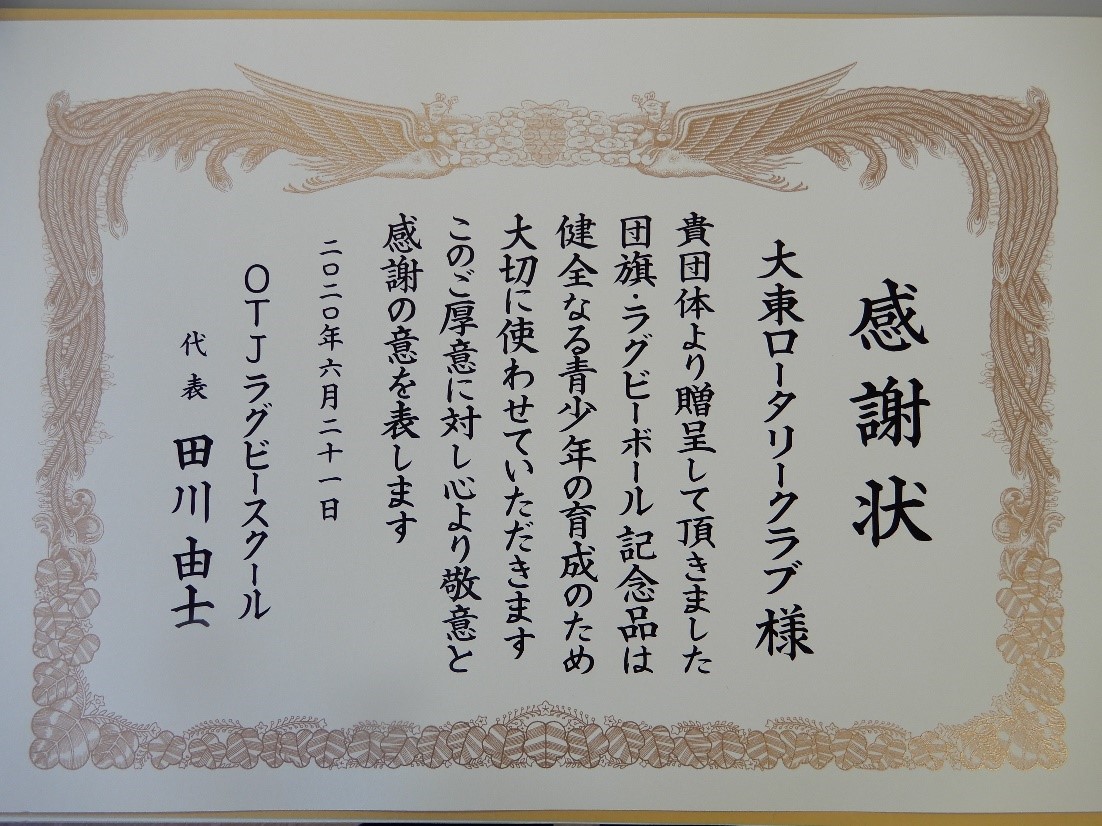 感謝状
大東ロータリークラブ様
貴団体より贈呈して頂きました
団旗・ラグビーボール記念品は
健全なる青少年の育成のため
大切に使わせていただきます
このご厚意に対し心より敬意と
感謝の意を表します
二〇二〇年六月二十一日
OTJラグビースクール
代表 田川由士